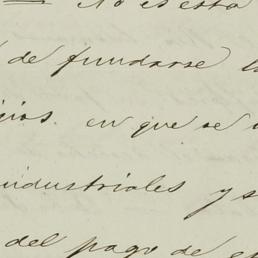 No es esta
de fundarse
en que se
industriales y s
del pago de